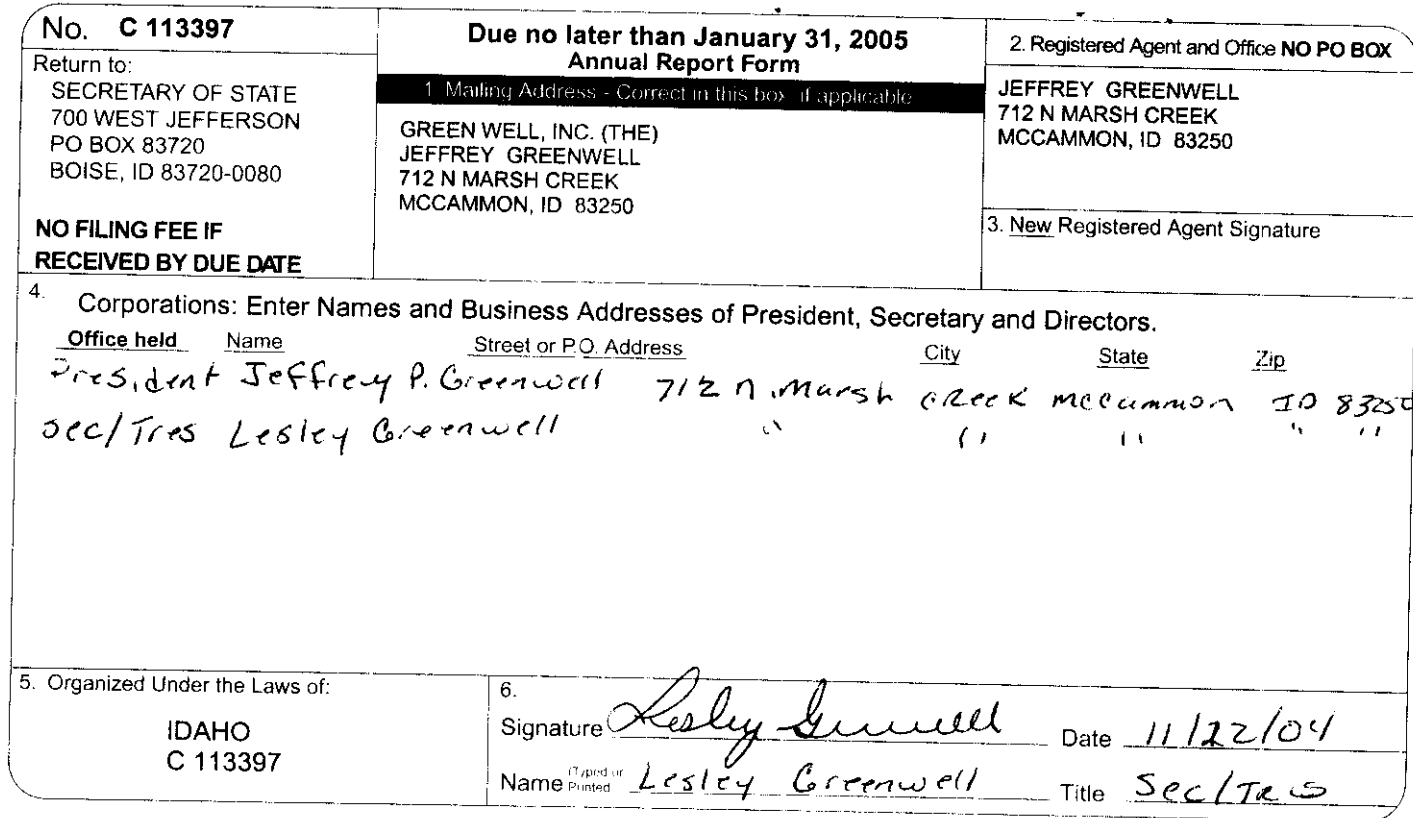 No. C 113397
Return to:
SECRETARY OF STATE
700 WEST JEFFERSON
PO BOX 83720
BOISE, ID 83720-0080
NO FILING FEE IF
RECEIVED BY DUE DATE
Due no later than January 31, 2005
Annual Report Form
1. Mailing Address - Correct in this box, if applicable
GREEN WELL, INC. (THE)
JEFFREY GREENWELL
712 N MARSH CREEK
MCCAMMON, ID 83250
2. Registered Agent and Office NO PO BOX
JEFFREY GREENWELL
712 N MARSH CREEK
MCCAMMON, ID 83250
3. New Registered Agent Signature
4. Corporations: Enter Names and Business Addresses of President, Secretary and Directors.
Office held Name Street or P.O. Address City State Zip
President Jeffrey P. Greenwell 712 N. Marsh Creek McCammon ID 83250
Sec/Tres Lesley Greenwell " " " " "
5. Organized Under the Laws of:
IDAHO
C 113397
6.
Signature Lesley Greenwell Date 11/22/04
Name (Typed or Printed Lesley Greenwell Title Sec/Tres